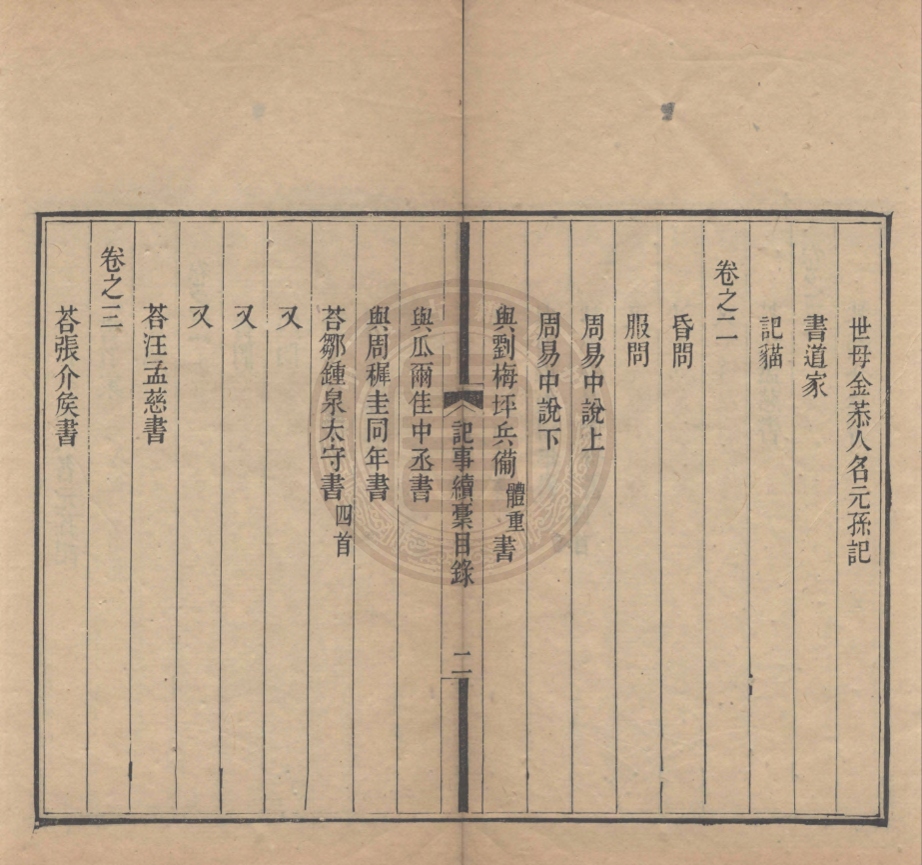 世母金恭人名元孫記
書道家
記貓
卷之二
昏問
服問
周易中說上
周易中說下
與劉梅坪兵備體重書
記事續稾目錄 二
與瓜爾佳中丞書
與周穉圭同年書
荅鄒鍾泉太守書四首
又
又
又
荅汪孟慈書
卷之三
荅張介矦書